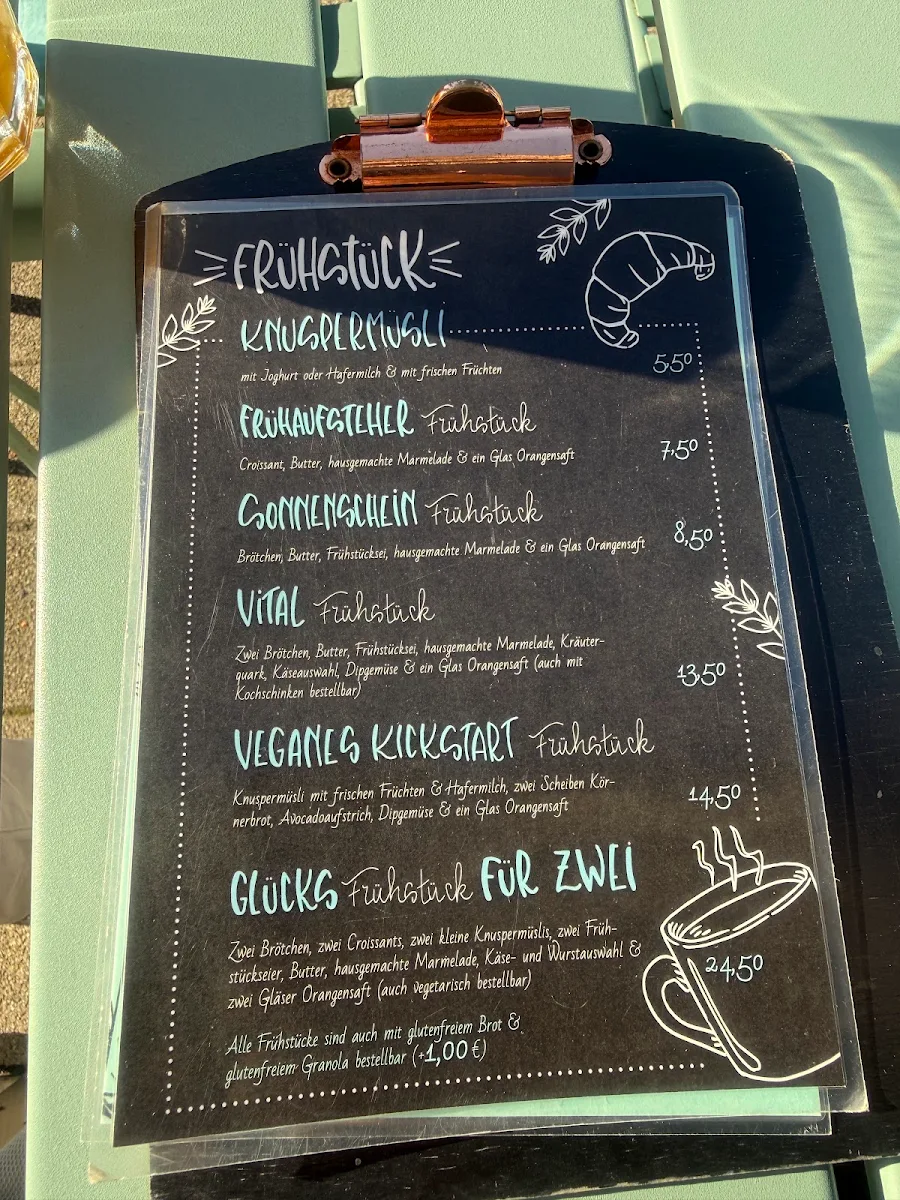 FRÜHSTÜCK
KNUSPERMÜSLI
5,50
mit Joghurt oder Hafermilch & mit frischen Früchten
FRÜHAUFSTEHER Frühstück
7,50
Croissant, Butter, hausgemachte Marmelade & ein Glas Orangensaft
SONNENSCHEIN Frühstück
8,50
Brötchen, Butter, Frühstücksei, hausgemachte Marmelade & ein Glas Orangensaft
VITAL Frühstück
Zwei Brötchen, Butter, Frühstücksei, hausgemachte Marmelade, Kräuter-
quark, Käseauswahl, Dipgemüse & ein Glas Orangensaft (auch mit
13,50
Kochschinken bestellbar)
VEGANES KICKSTART Frühstück
Knuspermüsli mit frischen Früchten & Hafermilch, zwei Scheiben Kör-
14,50
nerbrot, Avocadoaufstrich, Dipgemüse & ein Glas Orangensaft
GLÜCKS Frühstück FÜR ZWEI
Zwei Brötchen, zwei Croissants, zwei kleine Knuspermüslis, zwei Früh-
stückseier, Butter, hausgemachte Marmelade, Käse- und Wurstauswahl &
24,50
zwei Gläser Orangensaft (auch vegetarisch bestellbar)
Alle Frühstücke sind auch mit glutenfreiem Brot &
glutenfreiem Granola bestellbar (+1,00 €)